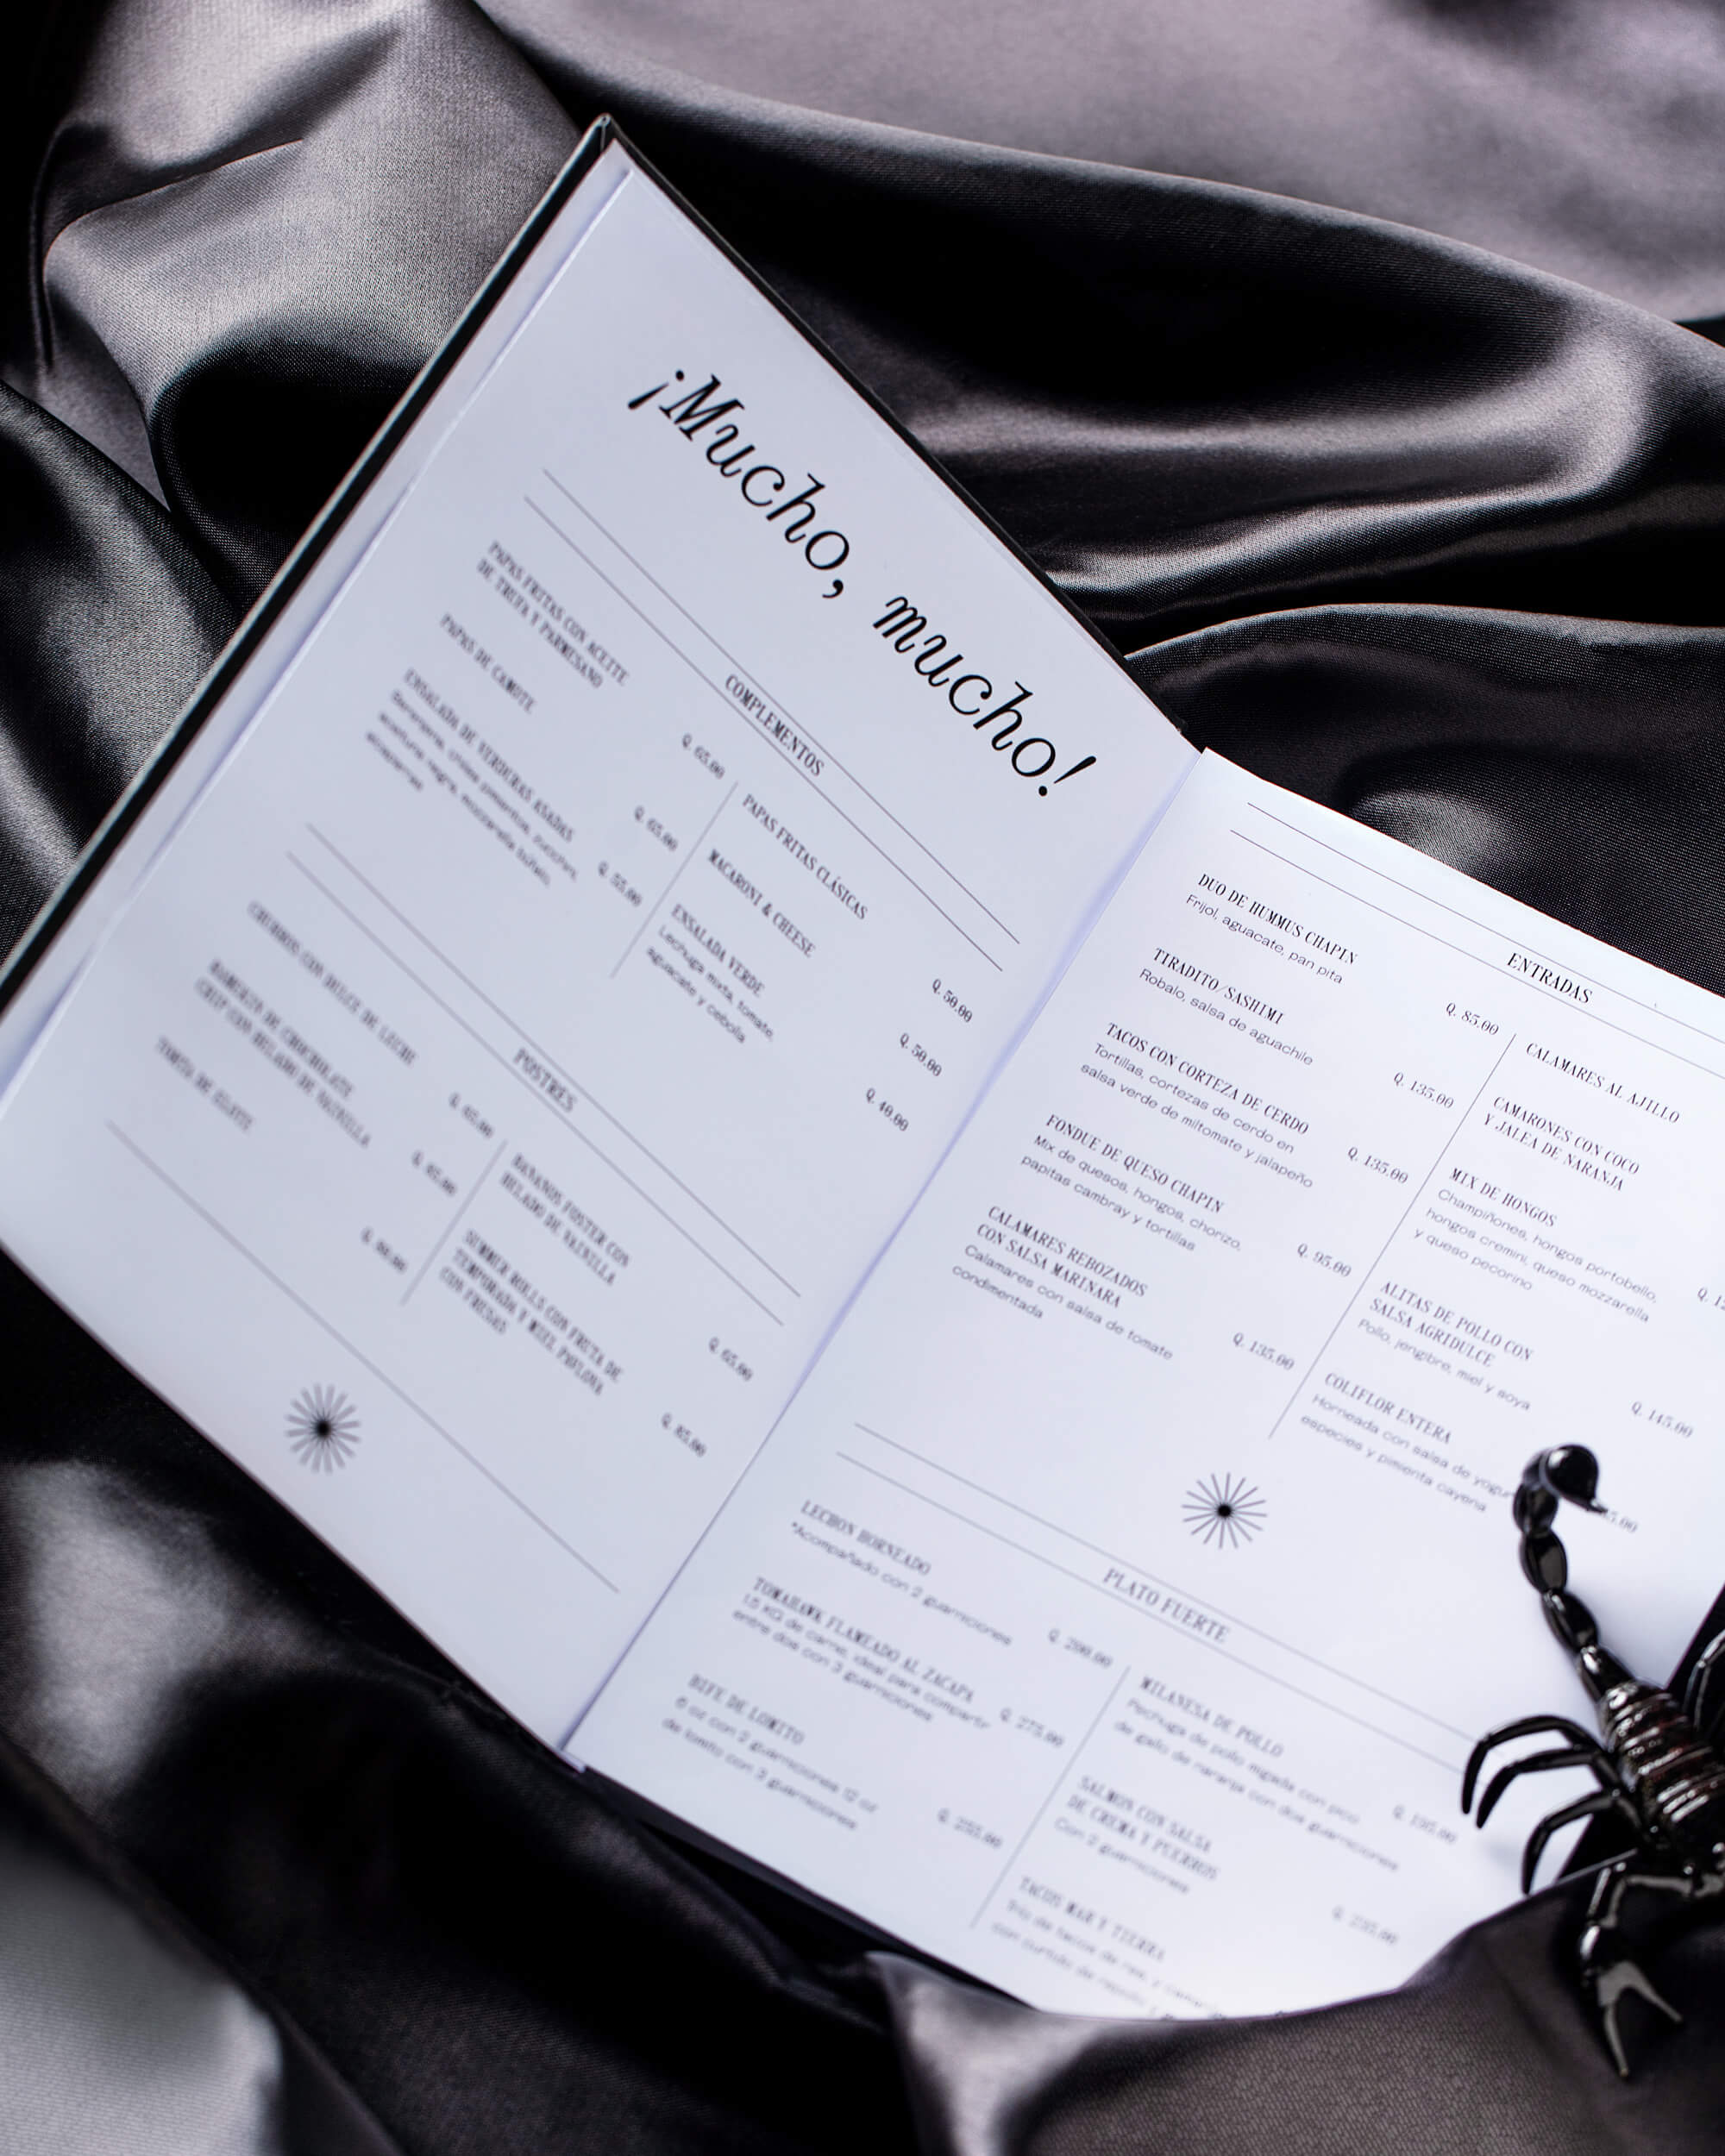 ¡Mucho, mucho!
COMPLEMENTOS
PAPAS FRITAS CON ACEITE
DE TRUFA Y PARMESANO
Q. 65.00
PAPAS DE CAMOTE
Q. 65.00
ENSALADA DE VERDURAS ASADAS
Q. 55.00
PAPAS FRITAS CLÁSICAS
Q. 50.00
MACARONI & CHEESE
Q. 50.00
ENSALADA VERDE
Lechuga mixta, tomate,
aguacate y cebolla
Q. 40.00
POSTRES
CHURROS CON DULCE DE LECHE
Q. 65.00
CHIP CON HELADO DE VAINILLA
BANANOS FOSTER CON
HELADO DE VAINILLA
Q. 65.00
SUMMER ROLLS CON FRUTA DE
TEMPORADA Y MIEL PAVLOVA
CON FRESAS
Q. 85.00
ENTRADAS
DUO DE HUMMUS CHAPIN
Frijol, aguacate, pan pita
Q. 85.00
TIRADITO/SASHIMI
Robalo, salsa de aguachile
Q. 135.00
TACOS CON CORTEZA DE CERDO
Tortillas, cortezas de cerdo en
salsa verde de miltomate y jalapeño
Q. 135.00
FONDUE DE QUESO CHAPIN
Mix de quesos, hongos, chorizo,
papitas cambray y tortillas
Q. 95.00
CALAMARES REBOZADOS
CON SALSA MARINARA
Calamares con salsa de tomate
condimentada
Q. 135.00
CALAMARES AL AJILLO
CAMARONES CON COCO
Y JALEA DE NARANJA
MIX DE HONGOS
Champiñones, hongos portobello,
hongos cremini, queso mozzarella
y queso pecorino
ALITAS DE POLLO CON
SALSA AGRIDULCE
Pollo, jengibre, miel y soya
Q. 145.00
COLIFLOR ENTERA
Horneada con salsa de yogur
especies y pimienta cayena
PLATO FUERTE
LECHON HORNEADO
*Acompañado con 2 guarniciones
TOMAHAWK FLAMEADO AL ZACAPA
1.5 KG de carne, ideal para compartir
entre dos con 3 guarniciones
Q. 275.00
BIFE DE LOMITO
6 oz con 2 guarniciones 12 oz
de lomito con 3 guarniciones
MILANESA DE POLLO
Pechuga de pollo migada con pico
de gallo de naranja con dos guarniciones
Q. 195.00
SALMON CON SALSA
DE CREMA Y PUERROS
Con 2 guarniciones
TACOS MAR Y TIERRA